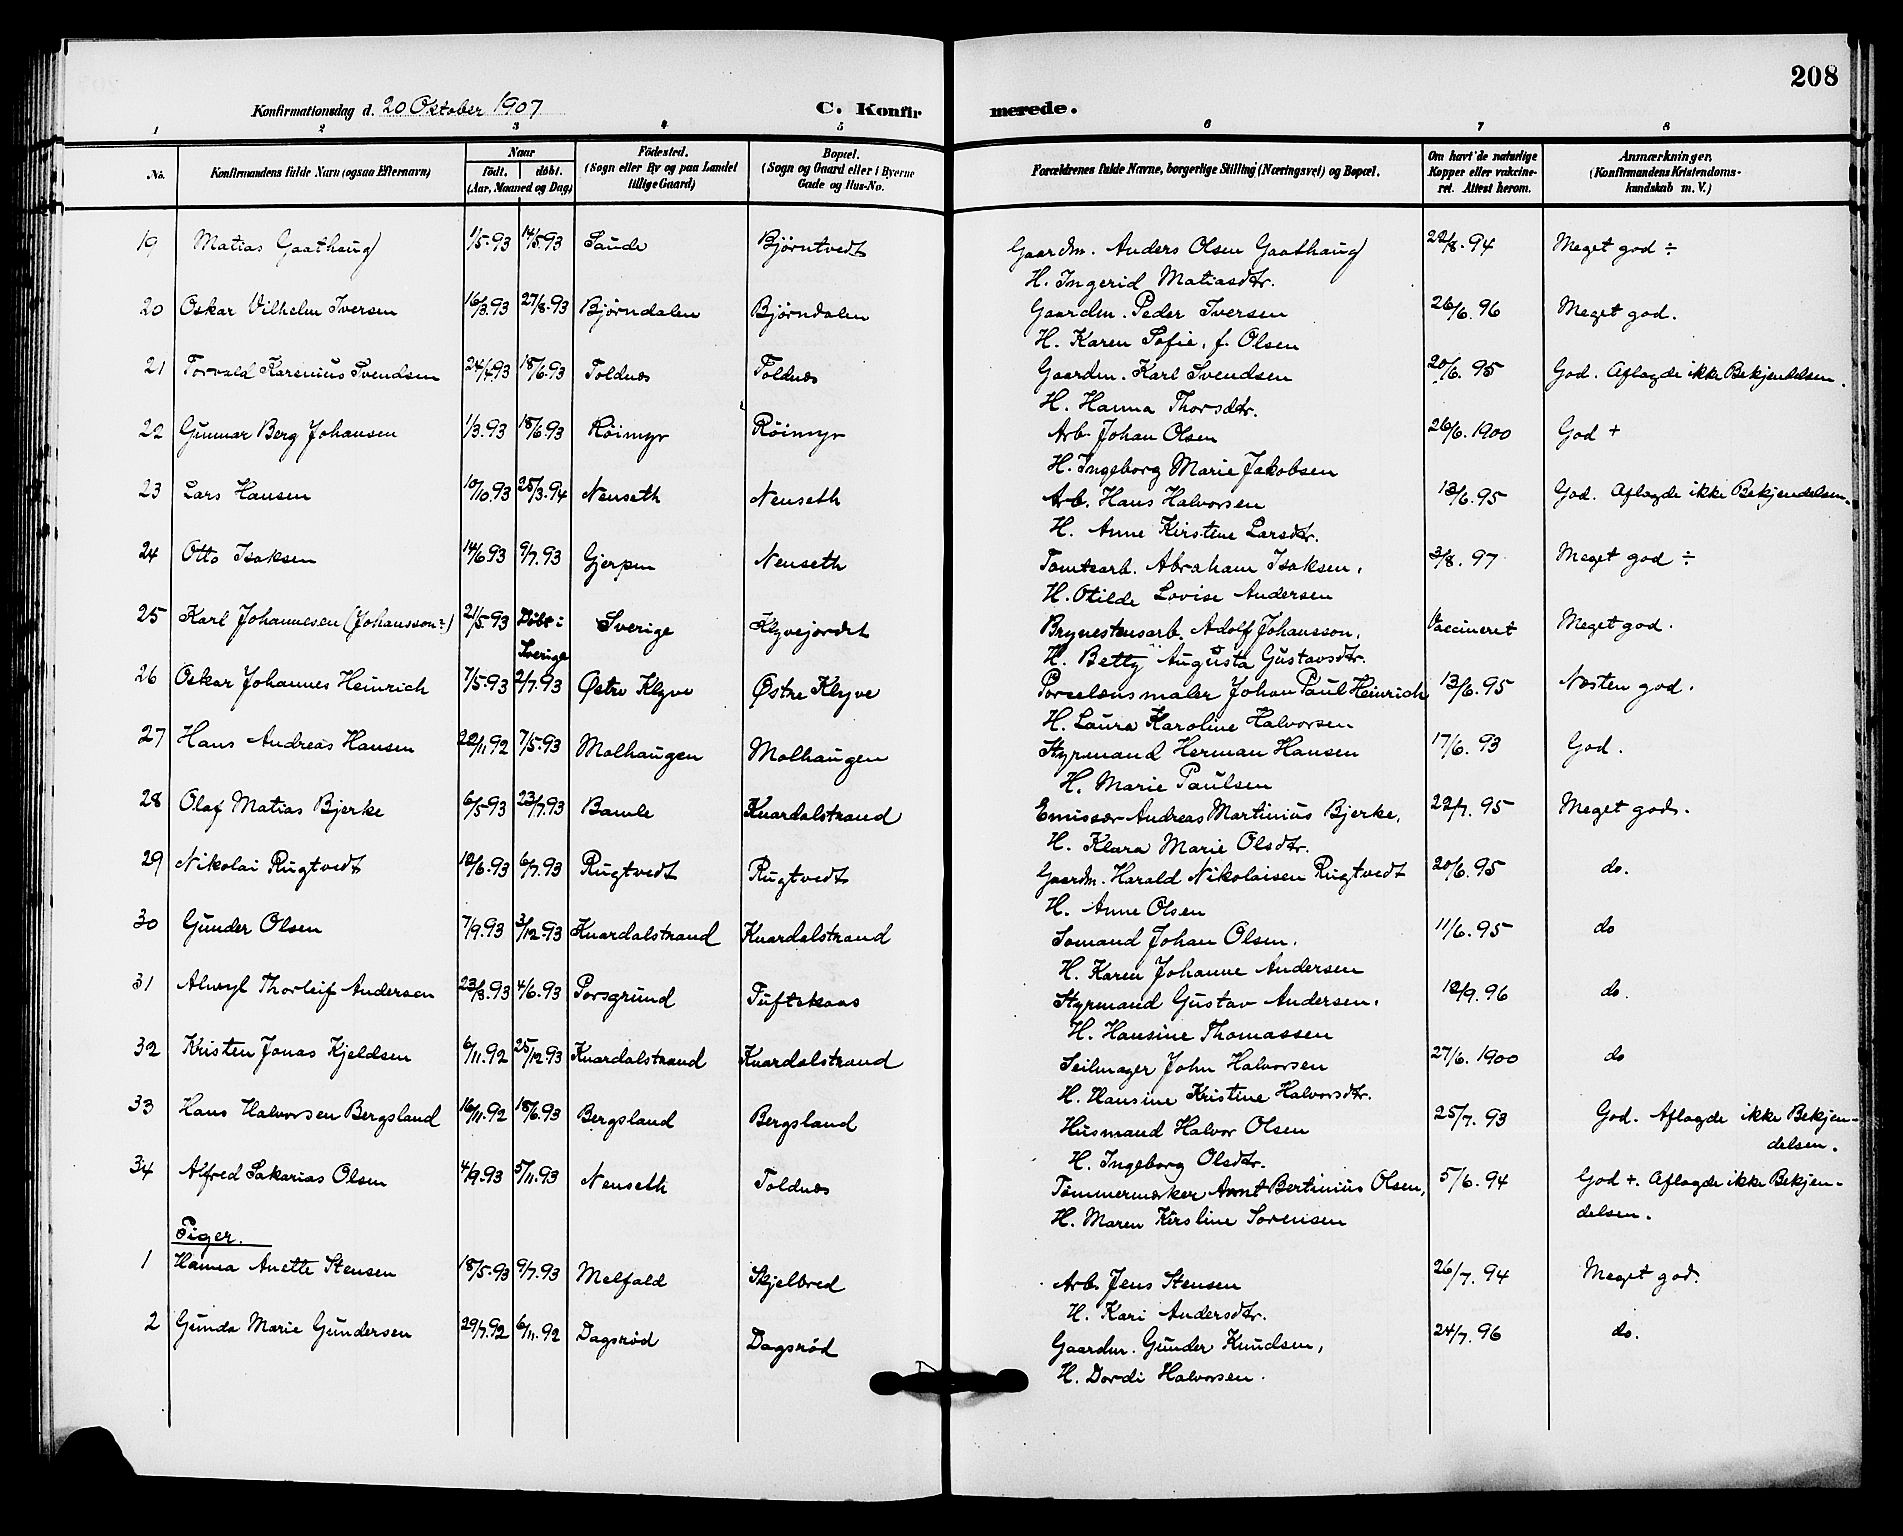 208
Konfirmationsdag d. 20 Oktober 1907 C. Konfirmerede.
1 2 3 4 5 6 7 8
No. Konfirmandens fulde Navn (ogsaa Efternavn) Naar født. døbt. (Aar, Maaned og Dag) Fødested. (Sogn eller By og paa Landet tillige Gaard) Bopæl. (Sogn og Gaard eller i Byerne Gade og Hus-No. Forældrenes fulde Navne, borgerlige Stilling (Næringsvei) og Bopæl. Om havt de naturlige Kopper eller vakcineret. Attest herom. Anmærkninger. (Konfirmandens Kristendomskundskab m. V.)
19 Matias Gaathaug 1/5.93 14/5.93 Saude Bjørntvedt Gaardm. Anders Olsen Gaathaug 22/8.94 Meget god ÷
H. Ingerid Matiasdtr.
20 Oskar Vilhelm Iversen 16/3.93 27/8.93 Bjørndalen Bjørndalen Gaardm. Peder Iversen 26/6.96 Meget god.
H. Karen Sofie, f. Olsen
21 Torvald Karenius Svendsen 24/4.93 18/6.93 Toldnæs Toldnæs Gaardm. Karl Svendsen 20/6.95 God. Aflagde ikke Bekjendelsen.
H. Hanna Thorsdtr.
22 Gunnar Berg Johansen 1/3.93 18/6.93 Röimyr Röimyr Arb. Johan Olsen 26/6.1900 God +
H. Ingeborg Marie Jakobsen
23 Lars Hansen 10/10.93 25/3.94 Nenseth Nenseth Arb. Hans Halvorsen 13/6.95 God. Aflagde ikke Bekjendelsen.
H. Anne Kirstine Larsdtr.
24 Otto Isaksen 14/6.93 9/7.93 Gjerpen Nenseth Tomtearb. Abraham Isaksen, 3/8.97 Meget god ÷
H. Otilde Lovise Andersen
25 Karl Johannesen (Johansson:) 21/5.93 Döbt i Sverige Sverige Klyvejordet Brynestensarb. Adolf Johansson, Vaccineret Meget god.
H. Betty Augusta Gustavsdtr.
26 Oskar Johannes Heinrich 7/5.93 2/7.93 Østre Klyve Østre Klyve Porselænsmaler Johan Paul Heinrich 13/6.95 Næsten god.
H. Laura Karoline Halvorsen
27 Hans Andreas Hansen 22/11.92 7/5.93 Molhaugen Molhaugen Styrmand Herman Hansen 17/6.93 God.
H. Marie Paulsen
28 Olaf Matias Bjerke 6/5.93 23/7.93 Bamle Knardalstrand Emissær Andreas Martinius Bjerke, 22/7.95 Meget god.
H. Klara Marie Olsdtr.
29 Nikolai Rugtvedt 12/6.93 6/7.93 Rugtvedt Rugtvedt Gaardm. Harald Nikolaisen Rugtvedt 20/6.95 do.
H. Anne Olsen
30 Gunder Olsen 7/9.93 3/12.93 Knardalstrand Knardalstrand Sömand Johan Olsen. 11/6.95 do
H. Karen Johanne Andersen
31 Alwyl Thorleif Andersen 23/3.93 4/6.93 Porsgrund Tuftekaas Styrmand Gustav Andersen. 12/9.96 do.
H. Hansine Thomassen
32 Kristen Jonas Kjeldsen 6/11.92 25/12.93 Knardalstrand Knardalstrand Seilmager John Halvorsen 27/6.1900 do
H. Hansine Kristine Halvorsdtr.
33 Hans Halvorsen Bergsland 16/11.92 18/6.93 Bergsland Bergsland Husmand Halvor Olsen 25/7.93 God. Aflagde ikke Bekjendelsen.
H. Ingeborg Olsdtr.
34 Alfred Sakarias Olsen 4/9.93 5/11.93 Nenseth Toldnæs Tömmermerker Arnt Bertinius Olsen, 5/6.94 God +. Aflagde ikke Bekjendelsen.
H. Maren Kirstine Sörensen
Piger.
1 Hanna Anette Stensen 18/5.93 9/7.93 Melfald Skjelbred Arb. Jens Stensen 26/7.94 Meget god.
H. Kari Andersdtr.
2 Gunda Marie Gundersen 29/7.92 6/11.92 Dagsröd Dagsröd Gaardm. Gunder Knudsen, 24/7.96 do.
H. Dordi Halvorsen.